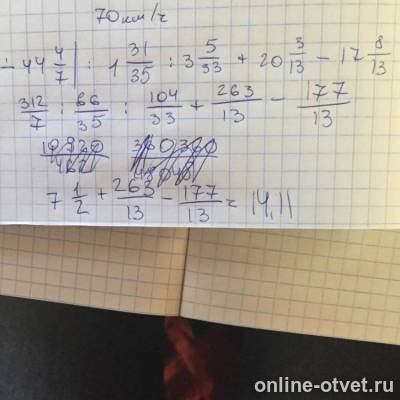 70 км/ч
- 44 4/7 | : 1 31/35 : 3 5/33 + 20 3/13 - 12 8/13
312/7 : 66/35 : 104/33 + 263/13 - 177/13
7 1/2 + 263/13 - 177/13 = 14,11
online-otvet.ru